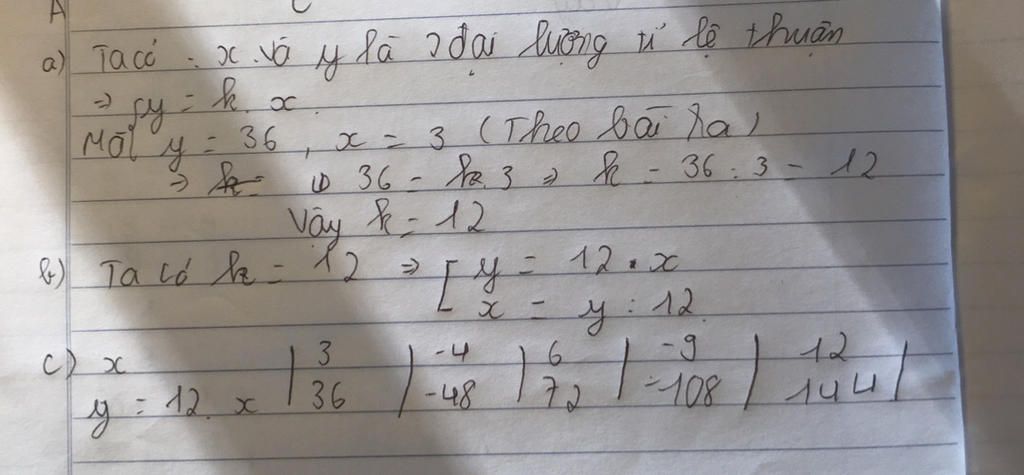 a) Ta có : x và y là 2 đại lượng tỉ lệ thuận
⇒ y = k . x
Mà y = 36 , x = 3 (Theo bài ra)
⇒ 36 = k . 3 ⇒ k = 36 : 3 = 12
Vậy k = 12
b) Ta có k = 12 ⇒ [ y = 12 . x
x = y : 12
c) x | 3 | -4 | 6 | -9 | 12 |
y = 12 . x | 36 | -48 | 72 | -108 | 144 |